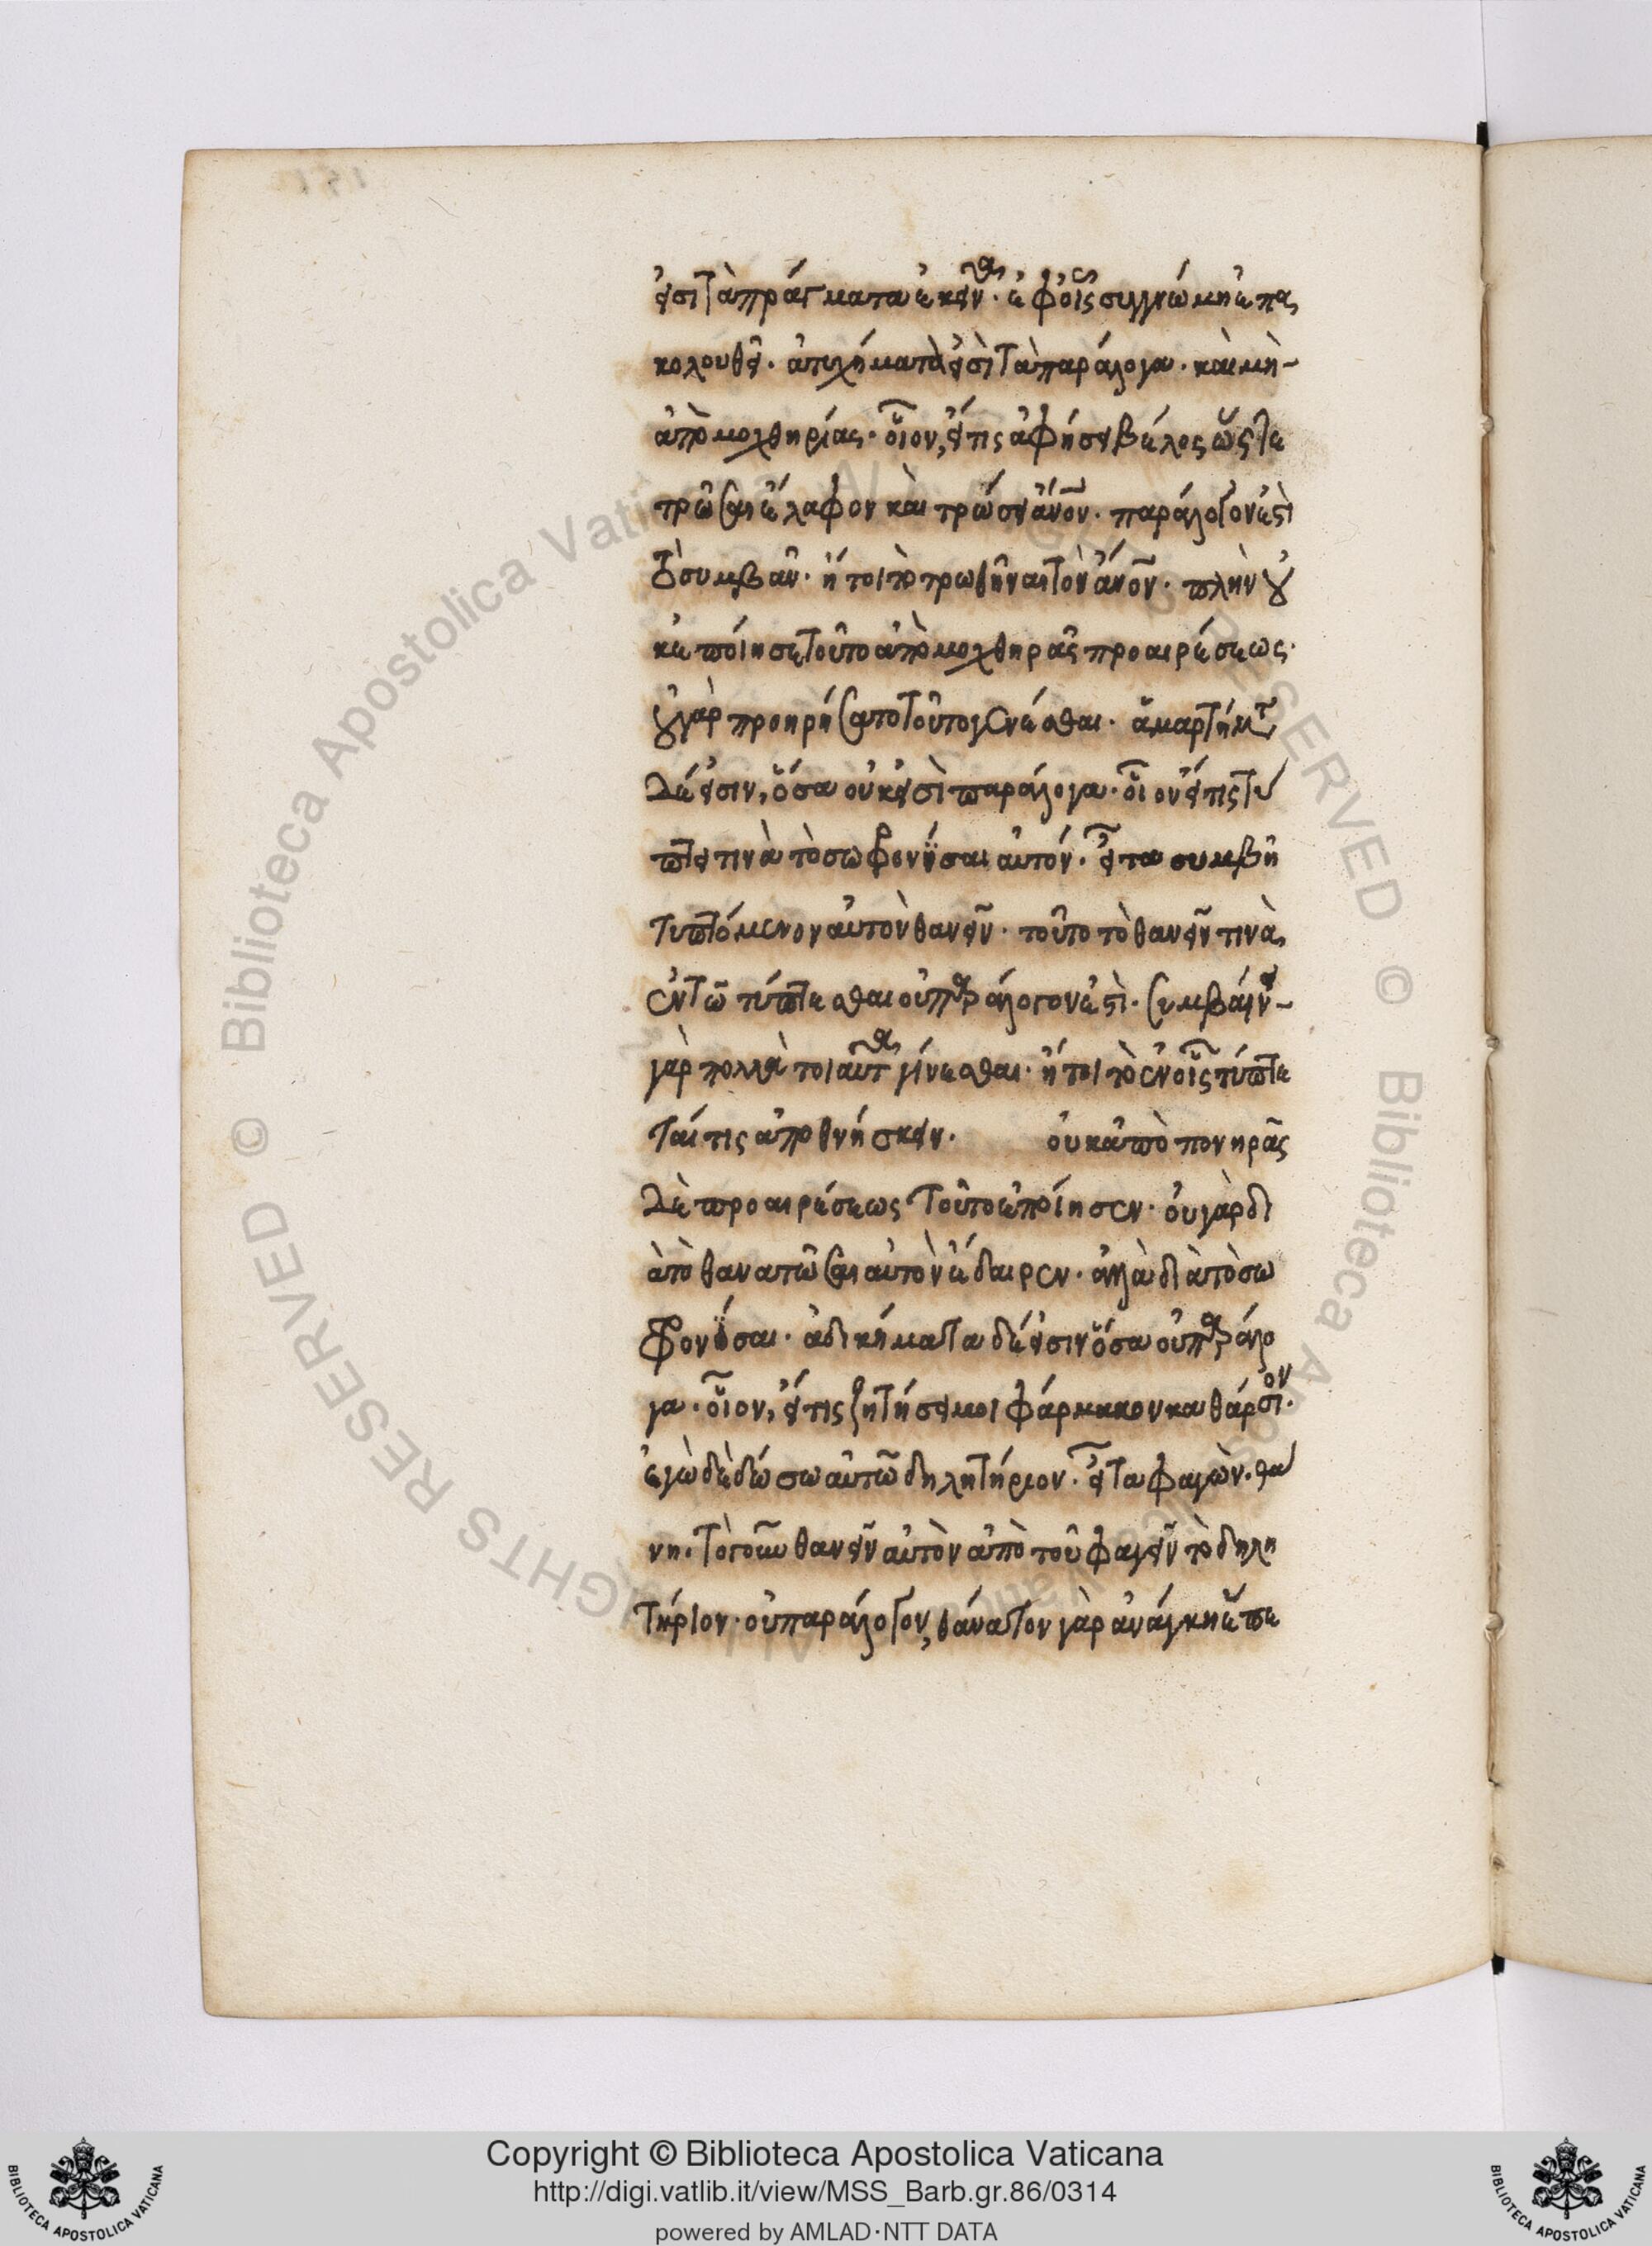 εἰσὶ τὰ πράγματα ἐκεῖνα· ἐφ' οἷς συγγνώμη ἐπα
κολουθεῖ· ἀτυχήματα εἰσὶ τὰ παράλογα· καὶ μὴ
ἀπὸ μοχθηρίας· οἷον, εἴ τις ἀφήσει βέλος ὥστε
τρῶσαι ἔλαφον καὶ τρώσει ἄνον· παράλογον ἐστὶ
τὸ συμβὰν· ἤτοι τὸ τρωθῆναι τὸν ἄνον· πλὴν οὐ
κ ἐποίησε τοῦτο ἀπὸ μοχθηρᾶς προαιρέσεως·
οὐ γὰρ προηρήσατο τοῦτο γενέσθαι· ἁμαρτήματα
δέ εἰσιν, ὅσα οὐκ εἰσὶ παράλογα· οἷον εἴ τις τύ
πτει τινὰ τὸ σωφρονῆσαι αὐτόν· εἶτα συμβῆ
τυπτόμενον αὐτὸν θανεῖν· τοῦτο τὸ θανεῖν τινὰ,
ἐν τῶ τύπτεσθαι οὐ παράλογον ἐστὶ· συμβαίνει
γὰρ πολλὰ τοιαῦτα γίνεσθαι· ἤτοι τὸ ἐν οἷς τύπτε
ταί τις ἀποθνήσκειν· οὐκ ἀπὸ πονηρᾶς
δὲ προαιρέσεως τοῦτο ἐποίησεν· οὐ γὰρ δι
ὰ τὸ θανατῶσαι αὐτὸν ἔδαιρεν· ἀλλὰ διὰ τὸ σω
φρονῆσαι· ἀδικήματα δέ εἰσιν ὅσα οὐ παράλο
γα· οἷον, εἴ τις ζητήσει μοι φάρμακον καθάρσιον·
ἐγὼ δὲ δώσω αὐτῶ δηλητήριον· εἶτα φαγὼν· θά
νη· τὸ γοῦν θανεῖν αὐτὸν ἀπὸ τοῦ φαγεῖν τὸ δηλη
τήριον· οὐ παράλογον, θάνατον γὰρ ἀνάγκη ἕπε
Copyright © Biblioteca Apostolica Vaticana
http://digi.vatlib.it/view/MSS_Barb.gr.86/0314
powered by AMLAD·NTT DATA